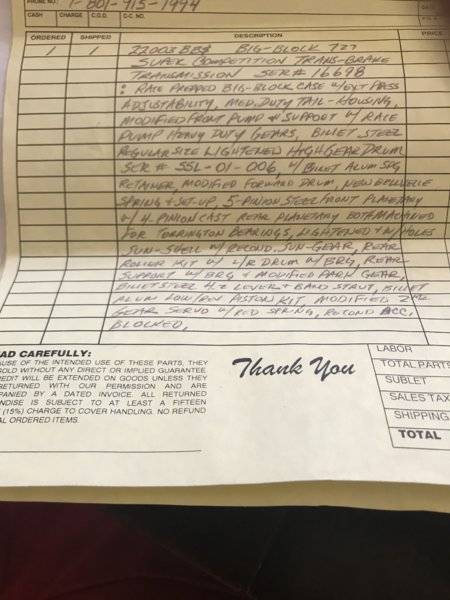 PHONE NO.: 1-801-915-1994
CASH CHARGE C.O.D. O-C. NO.
ORDERED SHIPPED DESCRIPTION PRICE
1 1 22003BBS BIG-BLOCK 727
SUPER COMPETITION TRANS-BRAKE
TRANSMISSION SER# 16698
: RACE PREPPED BIG-BLOCK CASE W/EXT PRESS
ADJUSTABILITY, MED. DUTY TAIL-HOUSING,
MODIFIED FRONT PUMP & SUPPORT W/ RACE
PUMP HEAVY DUTY GEARS, BILLET STEEL
REGULAR SIZE LIGHTENED HIGH GEAR DRUM
SER # SSL-01-006, W/ BILLET ALUM SPG
RETAINER, MODIFIED FORWARD DRUM, NEW BELLEVILLE
SPRING & SET-UP, 5-PINION STEEL FRONT PLANETARY
W/ 4-PINION CAST REAR PLANETARY BOTH MACHINED
FOR TORRINGTON BEARINGS, LIGHTENED & W/HOLES
SUN-SHELL W/ RECOND. SUN-GEAR, REAR
ROLLER KIT W/ L/R DRUM W/ BRG, REAR
SUPPORT W/ BRG & MODIFIED PARK GEAR,
BILLET STEEL 4.2 LEVER & BAND STRUT, BILLET
ALUM LOW/REV PISTON KIT, MODIFIED 2ND
GEAR SERVO W/ RED SPRING, RECOND ACC.
BLOCKED.
AD CAREFULLY:
AUSE OF THE INTENDED USE OF THESE PARTS, THEY
OLD WITHOUT ANY DIRECT OR IMPLIED GUARANTEE.
REDIT WILL BE EXTENDED ON GOODS UNLESS THEY
RETURNED WITH OUR PERMISSION AND ARE
PANIED BY A DATED INVOICE. ALL RETURNED
NDISE IS SUBJECT TO AT LEAST A FIFTEEN
(15%) CHARGE TO COVER HANDLING. NO REFUND
AL ORDERED ITEMS.
Thank You
LABOR
TOTAL PARTS
SUBLET
SALES TAX
SHIPPING
TOTAL